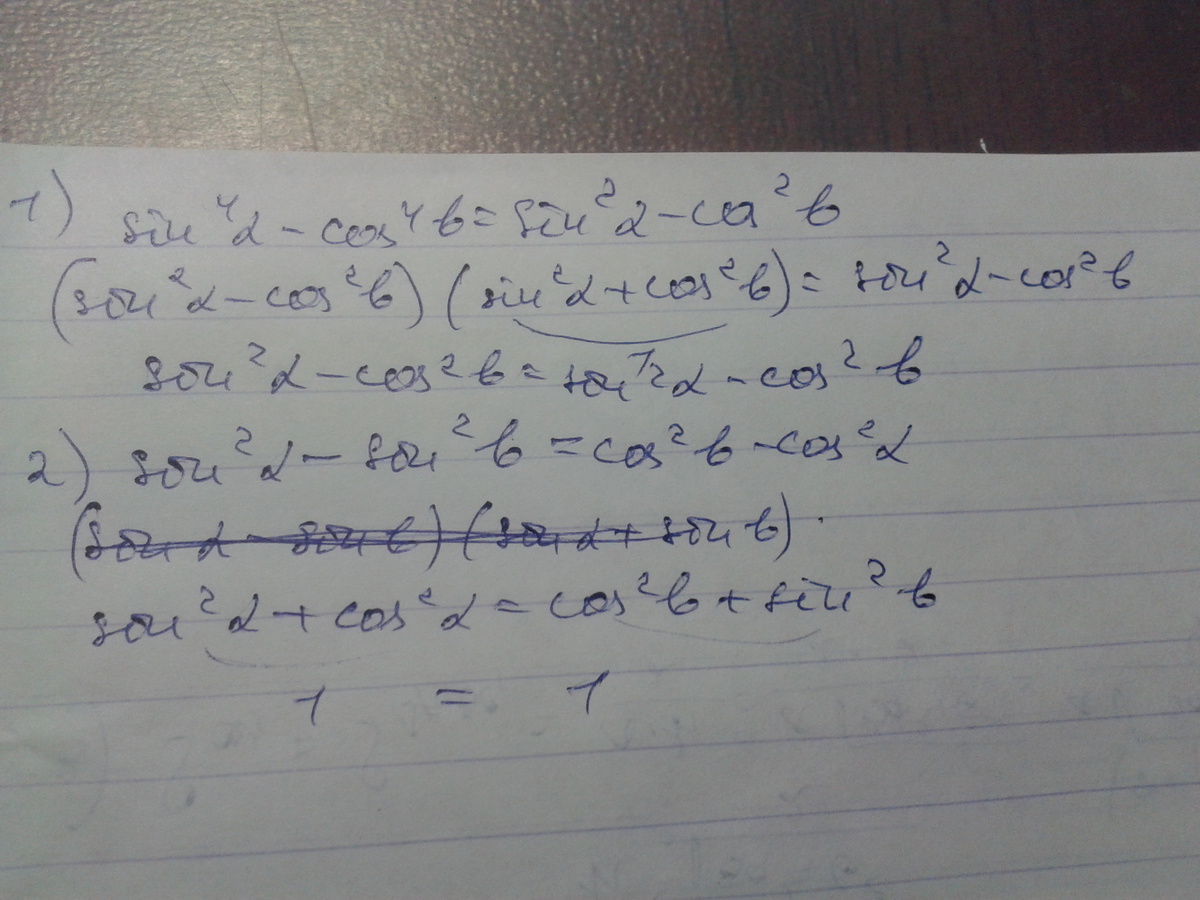 1) sin⁴α - cos⁴b = sin²α - cos²b
(sin²α - cos²b) (sin²α + cos²b) = sin²α - cos²b
sin²α - cos²b = sin²α - cos²b
2) sin²α - sin²b = cos²b - cos²α
(sin α - sin b) (sin α + sin b)
sin²α + cos²α = cos²b + sin²b
1 = 1